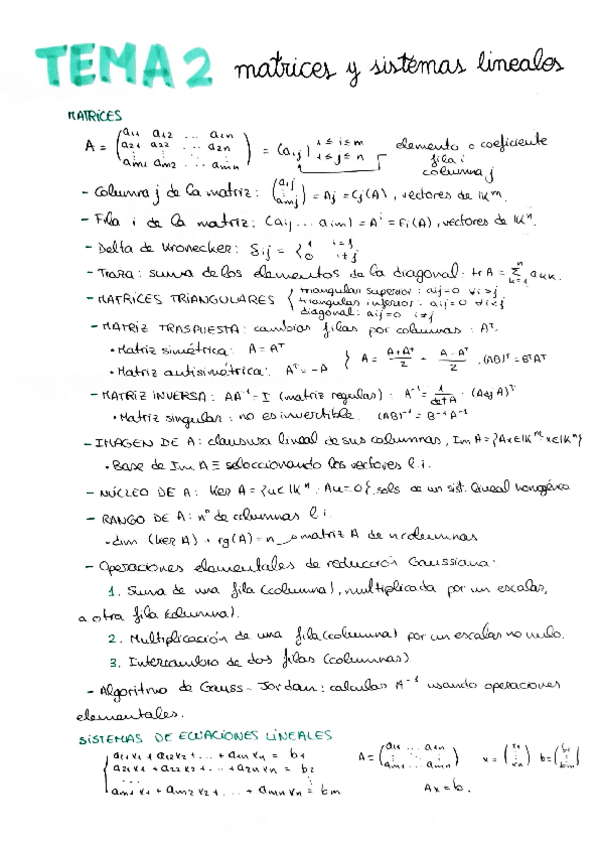 TEMA 2 matrices y sistemas lineales
MATRICES
A = (a11 a12 ... a1n / a21 a22 ... a2n / am1 am2 ... amn) = (aij) 1 ≤ i ≤ m 1 ≤ j ≤ n elemento o coeficiente
fila i
columna j
- Columna j de la matriz: (a1j ⋮ amj) = Aj = Cj(A), vectores de IK^m.
- Fila i de la matriz: (ai1 ... aim) = A^i = Fi(A), vectores de IK^n.
- Delta de Kronecker: δij = { 1 i=j
0 i≠j
- Traza: suma de los elementos de la diagonal: tr A = Σ(k=1, n) akk.
- MATRICES TRIANGULARES { triangular superior: aij=0 ∀i>j
triangular inferior: aij=0 ∀i<j
diagonal: aij=0 i≠j
- MATRIZ TRASPUESTA: cambiar filas por columnas: A^T.
• Matriz simétrica: A = A^T
• Matriz antisimétrica: A^T = -A } A = (A+A^T)/2 + (A-A^T)/2, (AB)^T = B^T A^T
- MATRIZ INVERSA: AA^-1 = I (matriz regular): A^-1 = 1/det A · (Adj A)^T
• Matriz singular: no es invertible. (AB)^-1 = B^-1 A^-1
- IMAGEN DE A: clausura lineal de sus columnas, Im A = {Ax∈IK^m : x∈IK^n}
• Base de Im A ≡ seleccionando los vectores l.i.
- NÚCLEO DE A: Ker A = {u∈IK^n : Au=0} sols de un sist. lineal homogéneo
- RANGO DE A: nº de columnas l.i.
• dim (Ker A) + rg(A) = n → matriz A de n columnas
- Operaciones elementales de reducción Gaussiana:
1. Suma de una fila (columna), multiplicada por un escalar,
a otra fila (columna).
2. Multiplicación de una fila (columna) por un escalar no nulo.
3. Intercambio de dos filas (columnas)
- Algoritmo de Gauss-Jordan: calcular A^-1 usando operaciones
elementales.
SISTEMAS DE ECUACIONES LINEALES
a11x1 + a12x2 + ... + a1nxn = b1
a21x1 + a22x2 + ... + a2nxn = b2
⋮
am1x1 + am2x2 + ... + amnxn = bm
A = (a11 ... a1n / am1 ... amn) x = (x1 ⋮ xn) b = (b1 ⋮ bm)
Ax = b.